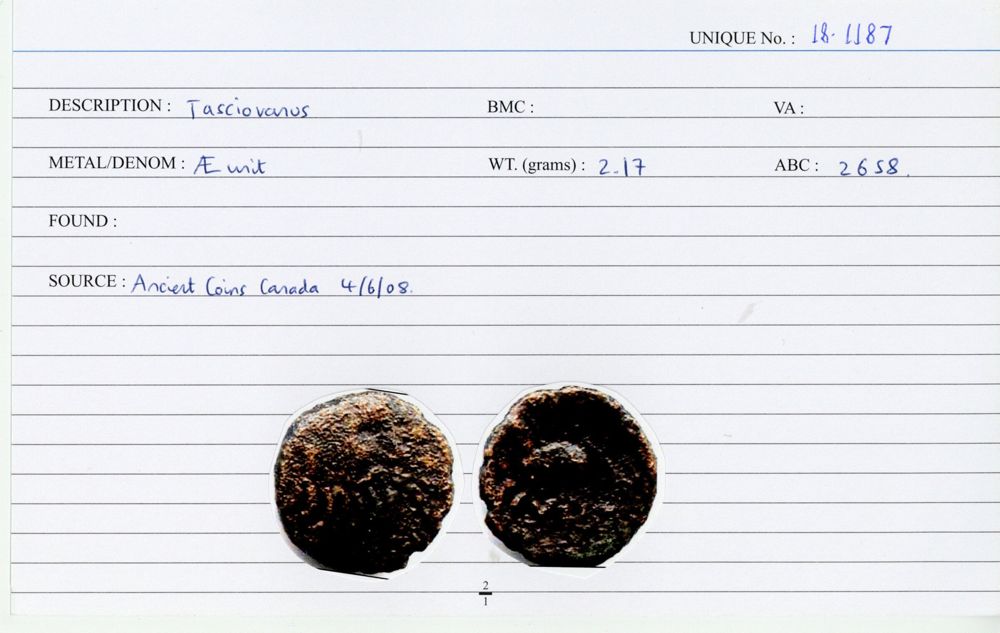 UNIQUE No. : 18-1187
DESCRIPTION : Tasciovanus BMC : VA :
METAL/DENOM : Æ unit WT. (grams) : 2.17 ABC : 2658.
FOUND :
SOURCE : Ancient Coins Canada 4/6/08.
2
1